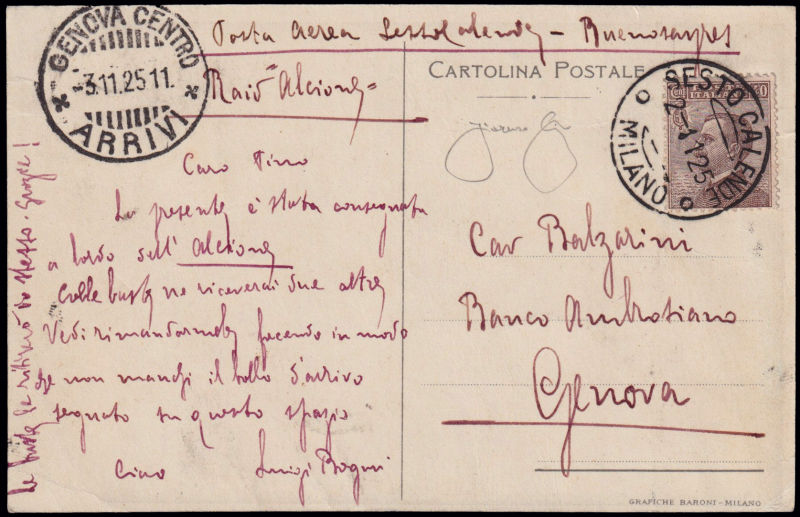 Posta aerea Sesto Calende - Buenosayres
Raid "Alcione"
CARTOLINA POSTALE
GENOVA CENTRO
-3.11.25 11.
ARRIVI
SESTO CALENDE
MILANO
Caro Tino
La presente è stata consegnata
a bordo dell'Alcione
colle buste ne riceverai due altre
Vedi rimandarmele facendo in modo
che non manchi il bollo d'arrivo
segnato su questo spazio
Ciao Luigi Bogni
Le buste le ritirerò io stesso. Grazie!
Cav Balzarini
Banco Ambrosiano
Genova
GRAFICHE BARONI - MILANO